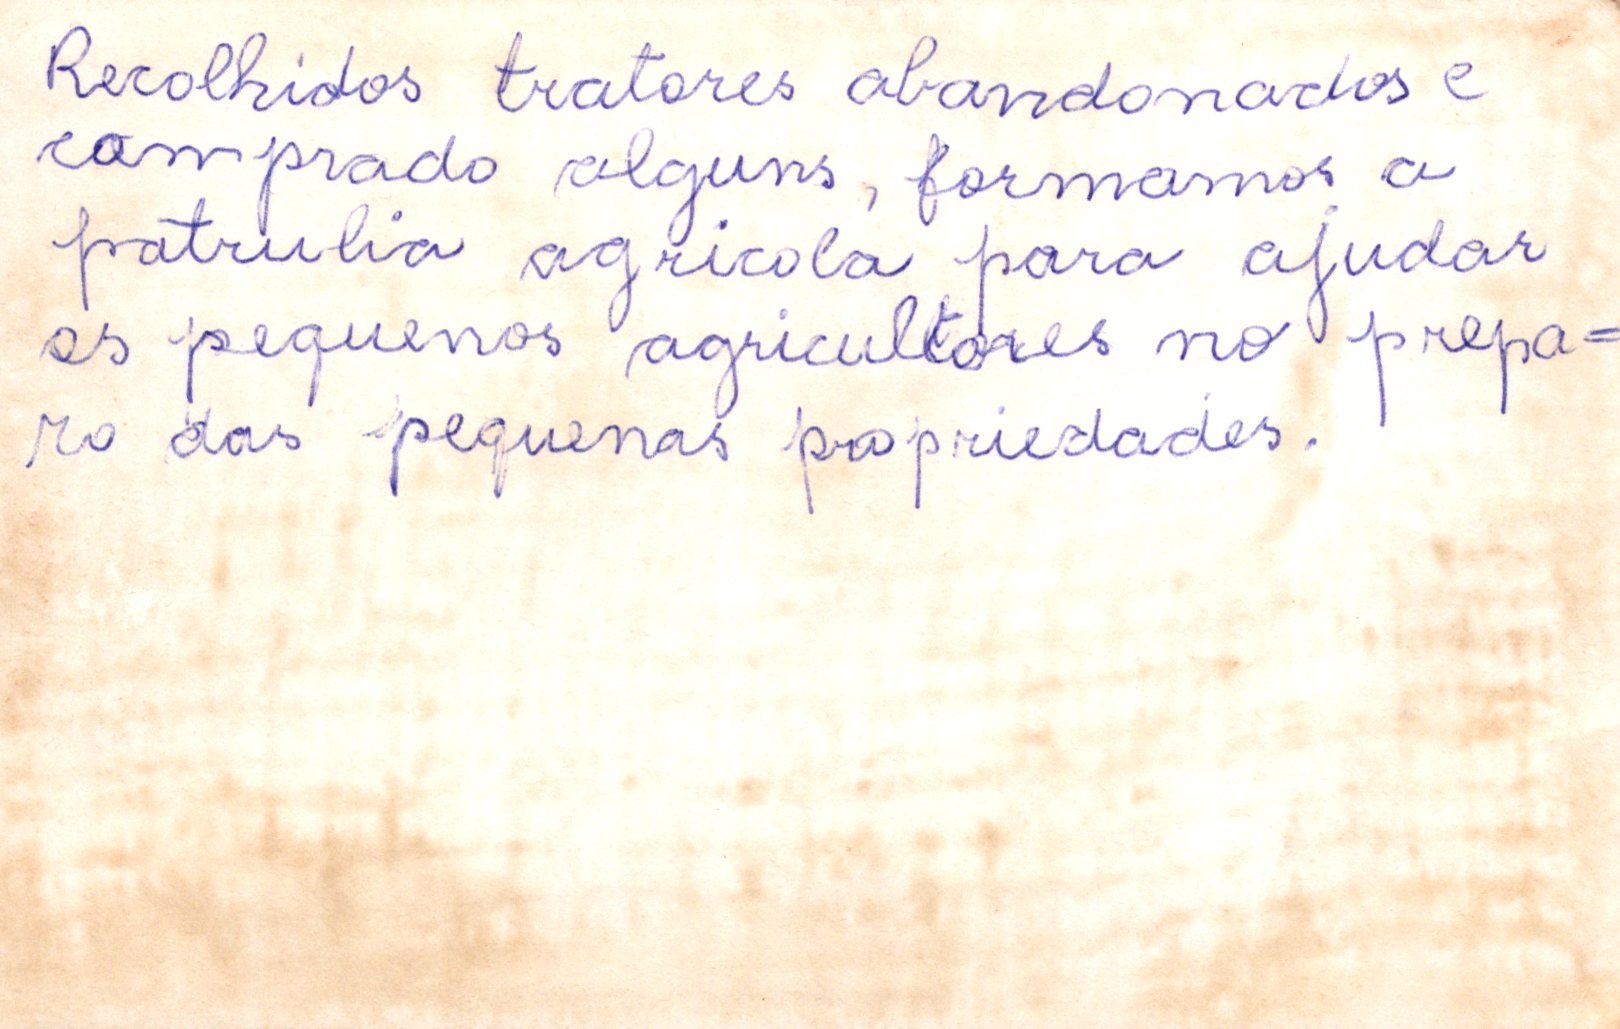 Recolhidos tratores abandonados e
comprado alguns, formamos a
patrulia agricola para ajudar
os pequenos agricultores no prepa=
ro das pequenas propriedades.